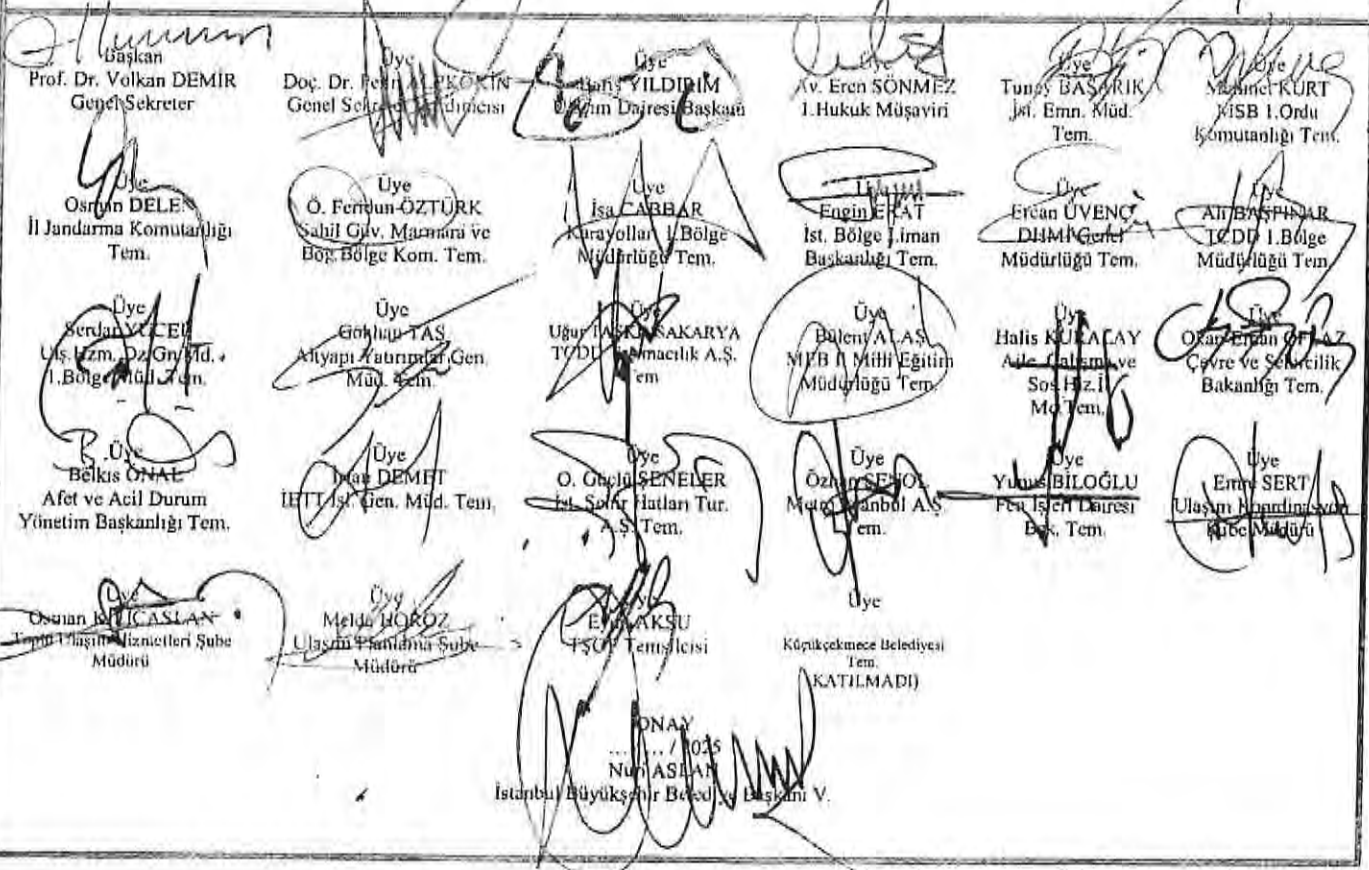 Başkan
Prof. Dr. Volkan DEMİR
Genel Sekreter
Üye
Doç. Dr. Pelin ALPKÖKİN
Genel Sekreter Yardımcısı
Üye
YILDIRIM
Ulaşım Dairesi Başkanı
Av. Eren SÖNMEZ
1.Hukuk Müşaviri
Üye
Tunay BAŞARIK
İst. Emn. Müd.
Tem.
Üye
Mehmet KURT
MSB 1.Ordu
Komutanlığı Tem.
Üye
Osman DELEN
İl Jandarma Komutanlığı
Tem.
Üye
Ö. Feridun ÖZTÜRK
Sahil Güv. Marmara ve
Boğ.Bölge Kom. Tem.
Üye
İsa CABBAR
Karayolları 1.Bölge
Müdürlüğü Tem.
Üye
Engin
İst. Bölge Liman
Başkanlığı Tem.
Üye
Ercan ÜVENÇ
DHMİ Genel
Müdürlüğü Tem.
Üye
Ali BAŞPINAR
TCDD 1.Bölge
Müdürlüğü Tem.
Üye
Serdar YÜCEL
Ulş.Hzm. Dz.Gn.Md.
1.Bölge Müd. Tem.
Üye
Gökhan TAŞ
Altyapı Yatırımlar Gen.
Müd. Tem.
Üye
Uğur SAKARYA
TCDD Taşımacılık A.Ş.
Tem
Üye
Bülent ALAŞ
MEB İl Milli Eğitim
Müdürlüğü Tem.
Üye
Halis
Aile Çalışma ve
Sos.Hiz.İl
Tem.
Üye
Okan Erhan OFLAZ
Çevre ve Şehircilik
Bakanlığı Tem.
Üye
Belkıs ÖNAL
Afet ve Acil Durum
Yönetim Başkanlığı Tem.
Üye
DEMET
İETT İşl. Gen. Müd. Tem.
Üye
O. Güçlü ŞENELER
İst. Şehir Hatları Tur.
A.Ş. Tem.
Üye
Özhan ŞENOL
Metro İstanbul A.Ş.
Tem.
Üye
Yunus BİLOĞLU
Fen İşleri Dairesi
Bşk. Tem.
Üye
Emre SERT
Ulaşım Koordinasyon
Şube Müdürü
Üye
Osman
Toplu Ulaşım Hizmetleri Şube
Müdürü
Üye
Melda HOROZ
Ulaşım Planlama Şube
Müdürü
AKSU
TŞOF Temsilcisi
Üye
Küçükçekmece Belediyesi
Tem.
KATILMADI)
ONAY
.... / .... / 2025
Nuri ASLAN
İstanbul Büyükşehir Belediye Başkanı V.